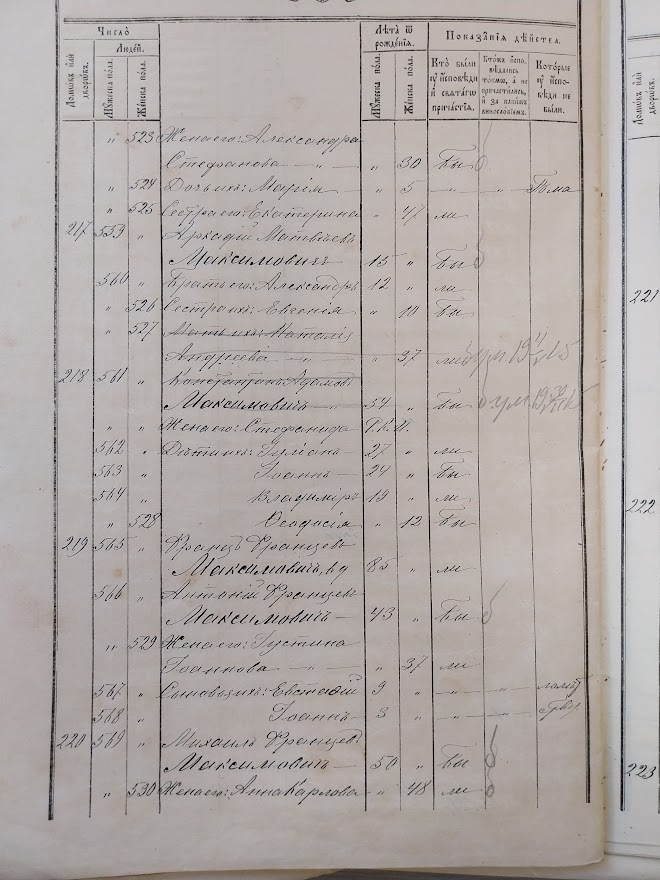 Число
Людей.
Лѣта ѿ рождєнїѧ.
Показанїѧ дѣйства.
Домѡвъ или дворѡвъ.
Мꙋжеска пола.
Женска пола.
Мꙋжеска пола.
Женска пола.
Кто были ꙋ исповѣди и свѧтагѡ причастїѧ.
Которые ꙋ исповѣди не были.
„ 523 Жена его: Александра
Стефанова — „ — „ 30 Бы
„ 524 Дочь ихъ: Марія „ 5 — „ —
„ 525 Сестра его: Екатерина „ 47 ли
217 559 „ Аркадій Матвѣевъ
Максимовичъ 15 „ Бы
560 „ Братъ его: Александръ 12 „ ли
„ 526 Сестра ихъ: Евгенія „ 10 Бы
„ 527 Мать ихъ: Наталія
Андреева — „ 37 ли ум. 19
218 561 „ Константинъ Адамовъ
Максимовичъ 54 „ Бы ум. 19
„ „ Жена его: Стефанида
562 „ Дѣти ихъ: Іуліанъ 27 „ ли
563 „ Іоаннъ 24 „ Бы
564 „ Владиміръ 19 „ ли
„ 528 Ѳеодосія „ 12 Бы
219 565 „ Францъ Францевъ
Максимовичъ, 85 „ ли
566 „ Антоній Францевъ
Максимовичъ 43 „ Бы
„ 529 Жена его: Іустина
Іоаннова — „ — „ 37 ли
567 „ Сыновья ихъ: Евстафій 9 „ — „ —
568 „ Іоаннъ 3 „ — „ —
220 569 „ Михаилъ Францевъ
Максимовичъ 50 „ Бы
„ 530 Жена его: Анна Карлова „ 48 ли
221
222
223